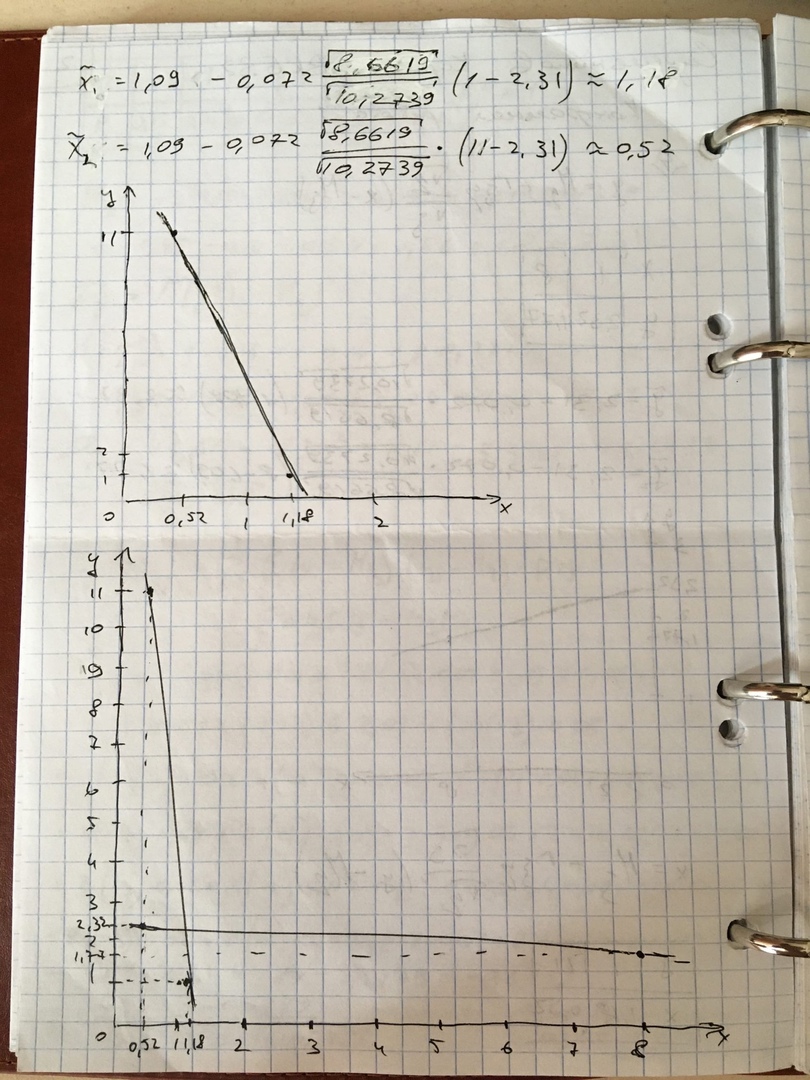 x̃₁ = 1,09 - 0,072 √8,6619/√10,2739 (1 - 2,31) ≈ 1,18
x̃₂ = 1,09 - 0,072 √8,6619/√10,2739 · (11 - 2,31) ≈ 0,52
y
11
2
1
0 0,52 1 1,18 2 x
y
11
10
9
8
7
6
5
4
3
2,32
2
1,77
1
0 0,52 1 1,18 2 3 4 5 6 7 8 x